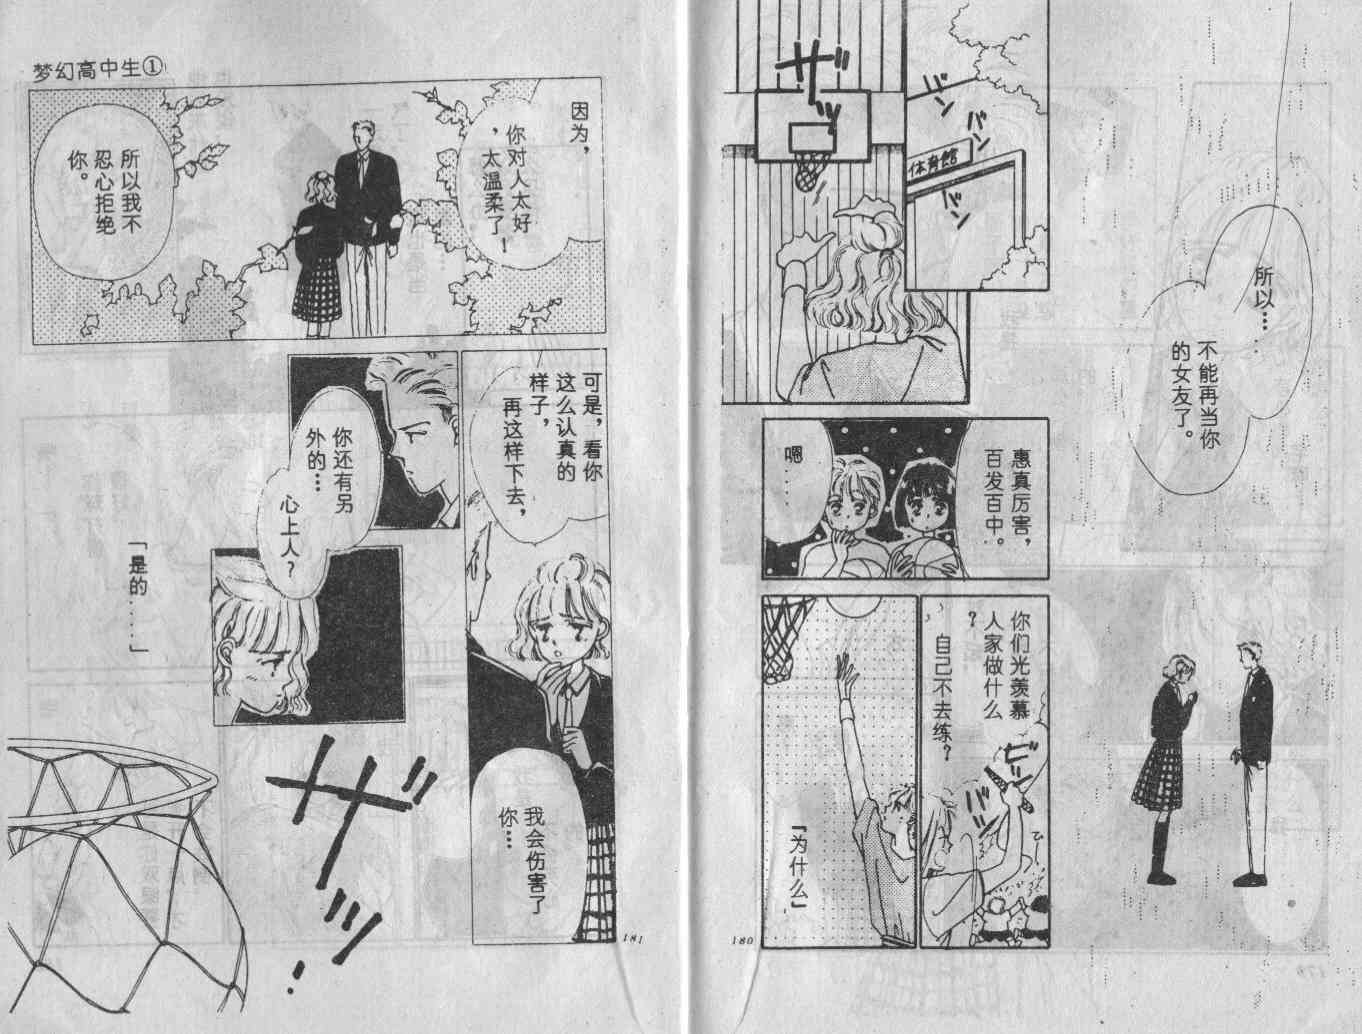 所以…
不能再当你
的女友了。
バン
バン
体育館
バン
ザッ
惠真厉害，
百发百中。
嗯
……
你们光羡慕
人家做什么
？
自己不去练？
ピーッ
バッ
『为什么』
180
梦幻高中生①
因为，
你对人太好
，太温柔了！
所以我不
忍心拒绝
你。
可是，看你
这么认真的
样子，
再这样下去，
我会伤害了
你…
你还有另
外的…
心上人？
「是的……」
ザッ
181